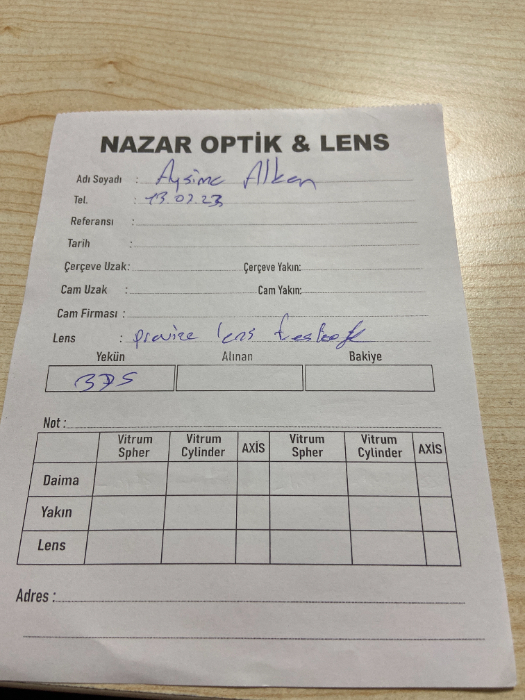 NAZAR OPTİK & LENS
Adı Soyadı : Aysima Alkan
Tel. : 13.02.23
Referansı :
Tarih :
Çerçeve Uzak: Çerçeve Yakın:
Cam Uzak : Cam Yakın:
Cam Firması :
Lens : lens
Yekün Alınan Bakiye
Not :
Vitrum Spher Vitrum Cylinder AXİS Vitrum Spher Vitrum Cylinder AXİS
Daima
Yakın
Lens
Adres :